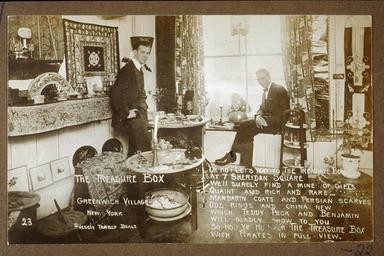 Oh Ho! Let's go to The Treasure Box
At 7 Sheridan Square
We'll surely find a mine of gifts
Quaint and rich and rare.
Mandarin coats and Persian scarves
Odd rings and china new
Which Teddy Peck and Benjamin
Will gladly show to you.
So Ho! Ye Ho! for The Treasure Box
With Pirates in full view.
The Treasure Box
Greenwich Village
New York
Jessie Tarbox Beals
23
22